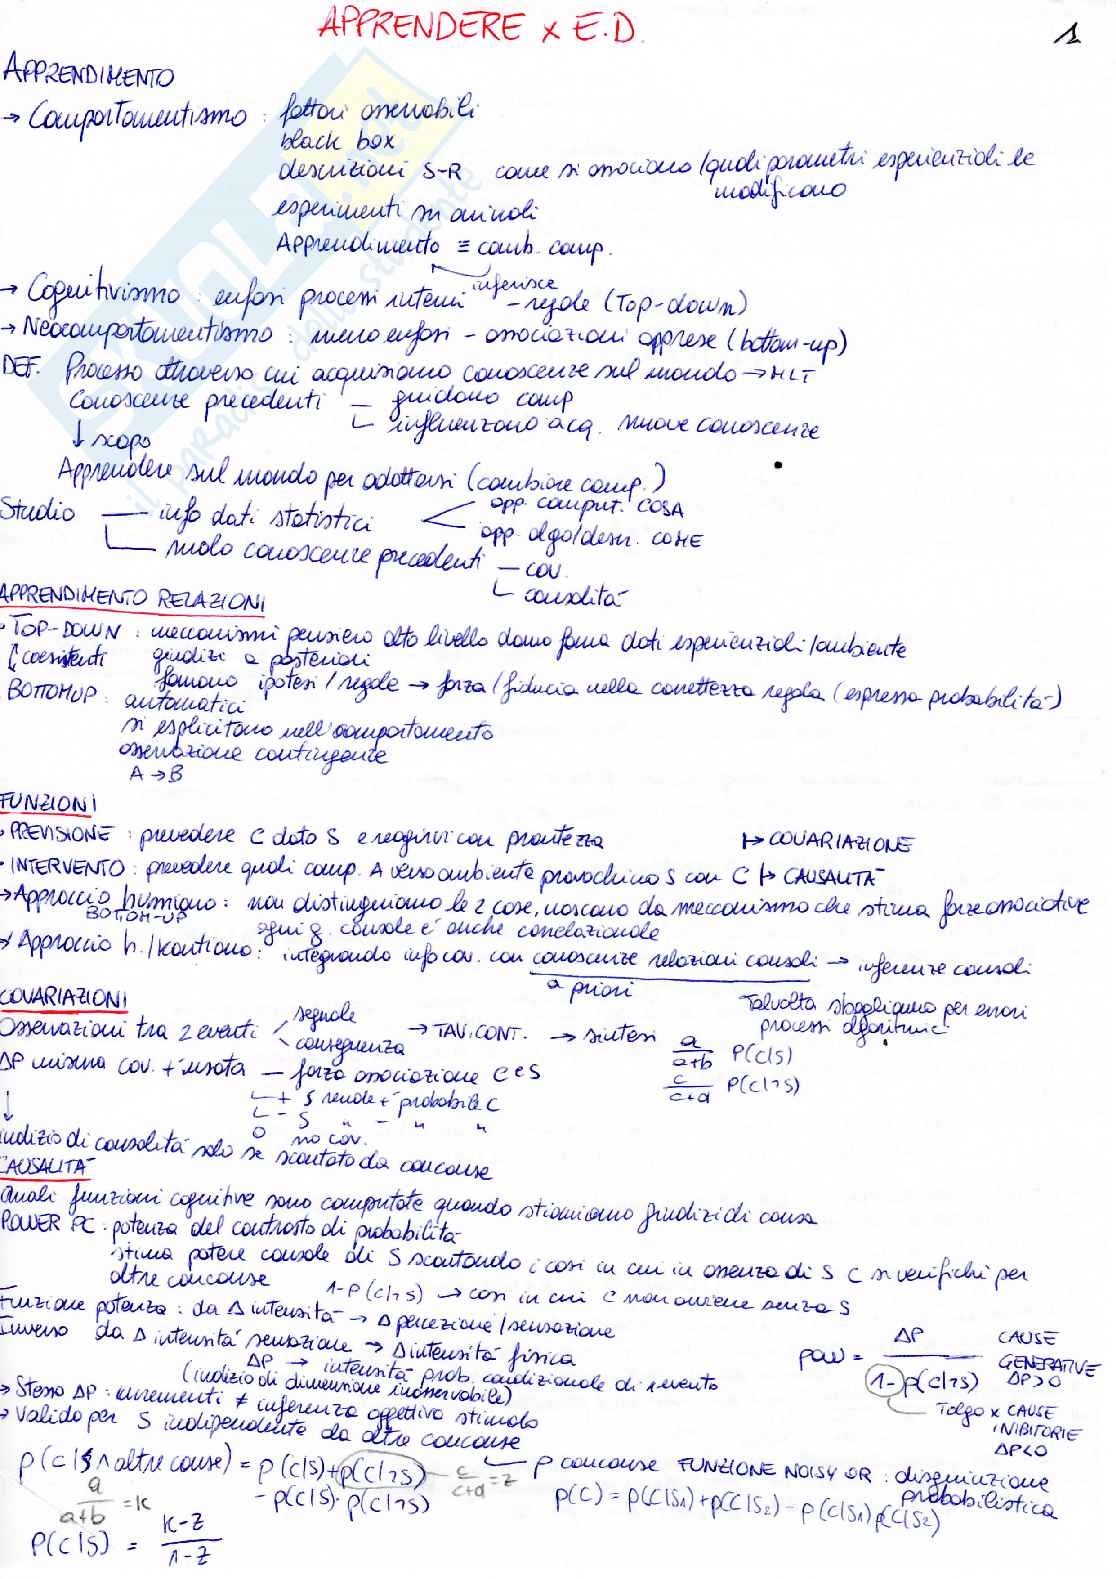 APPRENDERE x E.D.
1
APPRENDIMENTO
→ Comportamentismo : fattori osservabili
black box
descrizioni S-R come si associano / quali parametri esperienziali le
modificano
esperimenti su animali
Apprendimento ≡ camb. comp.
inferisce
→ Cognitivismo : enfasi processi interni - regole (Top-down)
→ Neocomportamentismo : meno enfasi - associazioni apprese (bottom-up)
DEF. Processo attraverso cui acquisiamo conoscenze sul mondo → MLT
Conoscenze precedenti — guidano comp
influenzano acq. nuove conoscenze
↓ scopo
Apprendere sul mondo per adattarsi (cambiare comp.)
Studio — info dati statistici < app. comput. COSA
app. algo/descr. COME
ruolo conoscenze precedenti — cov.
causalità
APPRENDIMENTO RELAZIONI
• TOP-DOWN : meccanismi pensiero alto livello danno forma dati esperienziali/ambiente
coesistenti giudizi a posteriori
formano ipotesi / regole → forza / fiducia nella correttezza regola (espressa probabilità)
BOTTOM UP : automatici
si esplicitano nell'comportamento
osservazione contingente
A → B
FUNZIONI
• PREVISIONE : prevedere C dato S e reagirvi con prontezza ↦ COVARIAZIONE
• INTERVENTO : prevedere quali comp. A verso ambiente provochino S con C ↦ CAUSALITÀ
→ Approccio humiano : non distinguiamo le 2 cose, nascono da meccanismo che stima forze associative
BOTTOM-UP ogni g. causale è anche correlazionale
→ Approccio h./kantiano : integrando info cov. con conoscenze relazioni causali → inferenze causali
a priori
COVARIAZIONI
Talvolta sbagliamo per errori
processi algoritmici
Osservazioni tra 2 eventi < segnale
conseguenza → TAV. CONT. → sintesi a/a+b P(C|S)
c/c+d P(C|¬S)
ΔP misura cov. + usata — forza associazione C e S
+ S rende + probabile C
- S " - " "
0 no cov.
↓
indizio di causalità solo se scontato da concause
CAUSALITÀ
Quali funzioni cognitive sono computate quando stimiamo giudizi di causa
POWER PC : potenza del contrasto di probabilità
stima potere causale di S scontando i casi in cui in assenza di S C si verifichi per
altre concause 1-P(C|¬S) → casi in cui C non avviene senza S
Funzione potenza : da Δ intensità → Δ percezione / sensazione
Inverso da Δ intensità sensazione → Δ intensità fisica
ΔP → intensità prob. condizionale di 1 evento
(indizio di dimensione inosservabile)
pow = ΔP / 1-p(C|¬S) CAUSE
GENERATIVE
ΔP>0
Tolgo x CAUSE
INIBITORIE
ΔP<0
→ Stesso ΔP : incrementi ≠ inferenza oggettiva stimolo
→ Valido per S indipendente da altre concause
p(C|S ∧ altre cause) = p(C|S) + p(C|¬S) — c/c+d = z
- p(C|S) · p(C|¬S)
p concause FUNZIONE NOISY OR : disgiunzione
probabilistica
p(C) = p(C|S1) + p(C|S2) - p(C|S1) p(C|S2)
a/a+b = k
P(C|S) = k-z / 1-z